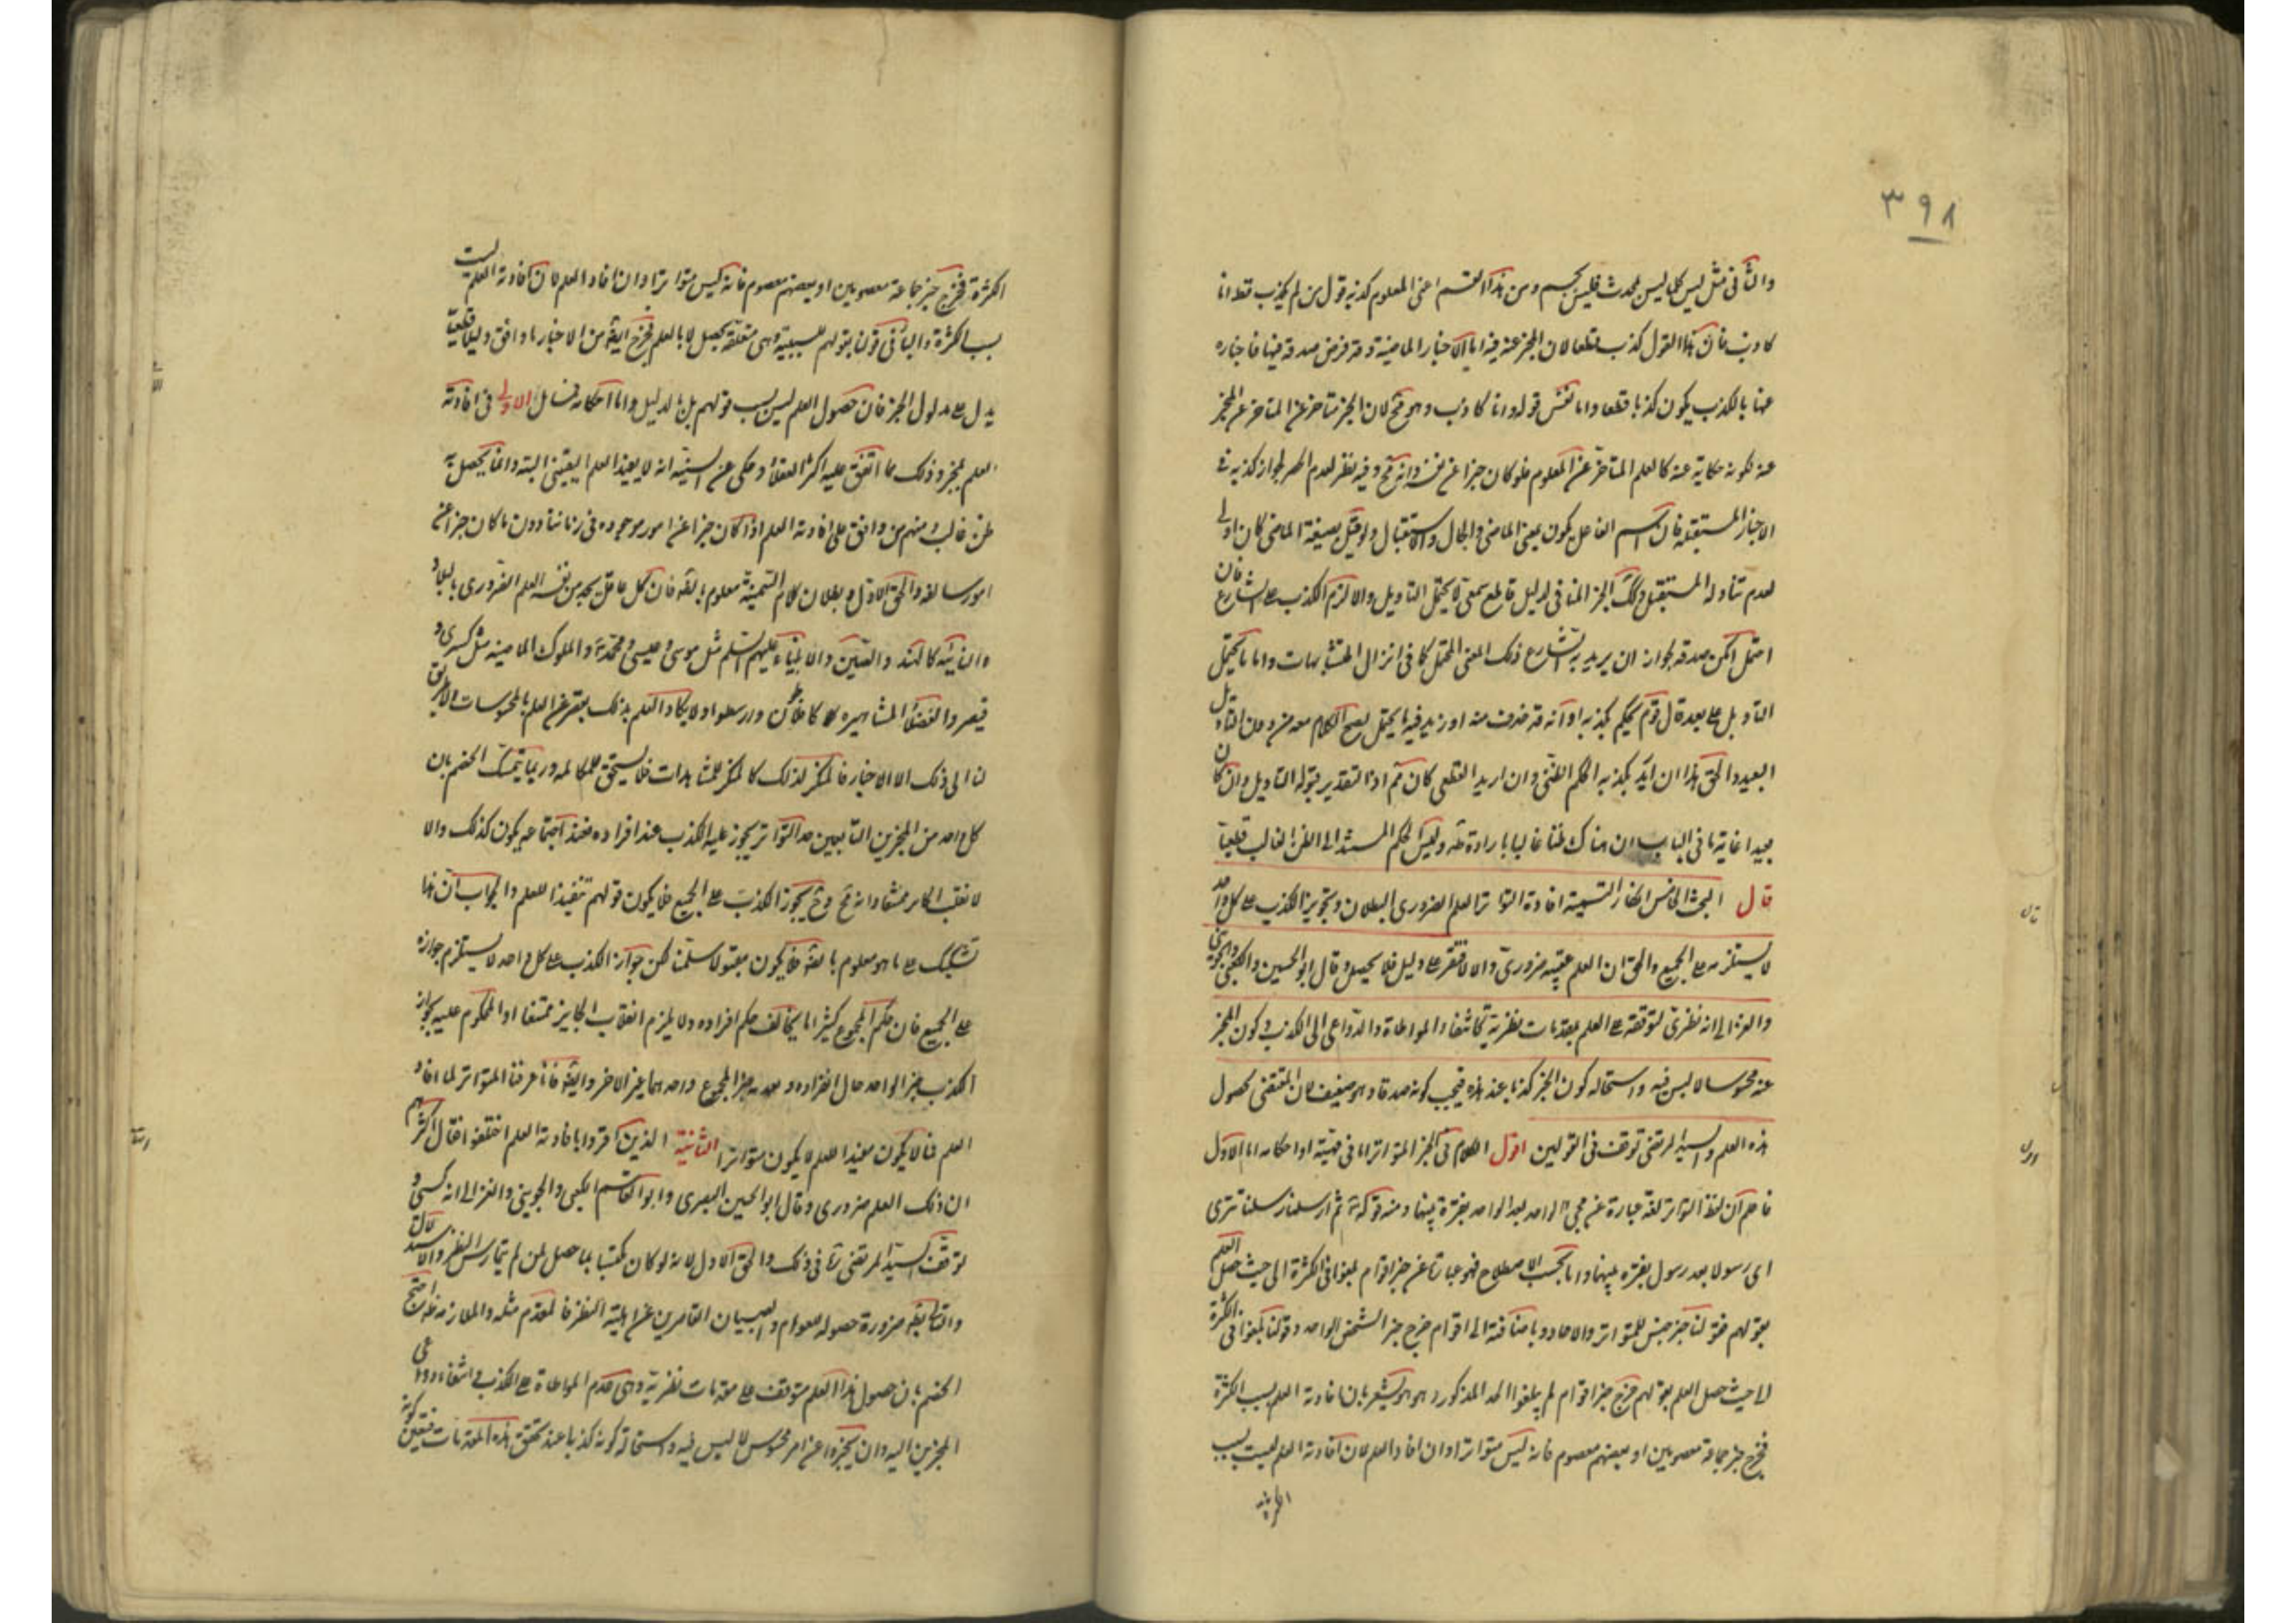 ٣٩٨
والثاني مثل ليس كل ليس بمحدث فليس بجسم ومن هذا القسم اعنى المعلوم كذبه قول من لم يكذب قط انا
كاذب فان هذا القول كذب قطعا لان المخبر عنه فيه اما الاخبار الماضية وقد فرض صدقه فيها فاخباره
عنها بالكذب يكون كذبا قطعا واما نفس قوله وانا كاذب وهو مح لان الخبر متاخر عن المتاخر عن المخبر
عنه لكونه حكاية عنه كالعلم المتاخر عن المعلوم فلو كان خبرا عن نفسه وانه مح وفيه نظر لعدم الحصر لجواز كذبه في
الاخبار المستقبلة فان اسم الفاعل يكون بمعنى الماضي والحال والاستقبال ولو قيل بصيغة الماضي كان اولى
لعدم تناوله المستقبل وكك الخبر المنافي لدليل قاطع سمعى لا يحتمل التاويل والا لزم الكذب على الشارع فان
احتمل امكن صدقه لجواز ان يريد به الشارع ذلك المعنى المحتمل كما في انزال المتشابهات واما ما يحتمل
التاويل على بعد قال قوم يحكم بكذبه او انه قد حذف منه او زيد فيه ما يحتمل يصح الكلام معه من دون التاويل
البعيد والحق هذا ان اريد بكذبه الحكم الظني وان اريد القطعى كان مم اذ التقدير قبوله التاويل وان كان
بعيدا غاية ما في الباب ان هناك ظنا غالبا بارادة وليس الحكم المستند الى الظن الغالب قطعيا
قال البحث الخامس انكار السمنية افادة التواتر العلم الضرورى البطلان وتجويز الكذب على كل واحد
لا يستلزمه على الجميع والحق ان العلم عقيبه ضرورى والا لافتقر على دليل فلا يحصل وقال ابو الحسين والكعبى والجوينى
والغزالى انه نظرى لتوقفه على العلم بمقدمات نظرية كانتفاء المواطاة والدواعى الى الكذب وكون المخبر
عنه محسوسا لا لبس فيه واستحاله كون الخبر كذبا عند هذه فيجب كونه صدقا وهو ضعيف لان المقتضى لحصول
هذه العلم والسيد المرتضى توقف فى القولين اقول الكلام فى الخبر المتواتر اما فى مهيته او احكامه اما الاول
فاعلم ان لفظ التواتر لغة عبارة عن مجىء الواحد بعد الواحد بفترة بينهما ومنه قوله تعالى ثم ارسلنا رسلنا تترى
اى رسولا بعد رسول بفترة بينهما واما بحسب الاصطلاح فهو عبارة عن خبر اقوام بلغوا فى الكثرة الى حيث حصل العلم
بقولهم فقولنا خبر جنس للمتواتر والاحاد وباضافته الى اقوام خرج خبر الشخص الواحد وقولنا بلغوا فى الكثرة
الى حيث حصل العلم بقولهم خرج خبر اقوام لم يبلغوا الحد المذكور وهو يشعر بان افادته العلم بسبب الكثرة
فخرج خبر جماعة معصومين او بعضهم معصوم فانه ليس متواترا وان افاد العلم لان افادته العلم ليست بسبب
الكثرة
قال
اقول
الكثرة فخرج خبر جماعة معصومين او بعضهم معصوم فانه ليس متواترا وان افاد العلم لان افادته العلم ليست
بسبب الكثرة والباء فى قولنا بقولهم للسببية وهى متعلقة بحصل لا بالعلم فخرج ايضا من الاخبار ما وافق دليلا قطعيا
يدل على مدلول الخبر فان حصول العلم ليس بسبب قولهم بل بالدليل واما احكامه فمسائل الاولى فى افادته
العلم بمخبره وذلك مما اتفق عليه اكثر العقلاء وحكى عن السمنية انه لا يفيد العلم اليقينى البتة وانما يحصل به
ظن غالب ومنهم من وافق على افادته العلم اذا كان خبرا عن امور موجوده فى زماننا دون ما كان خبرا عن
امور سالفه والحق الاول وبطلان كلام السمنية معلوم بالضرورة فان كل عاقل يجد من نفسه العلم الضرورى بالبلاد
النائيه كالهند والصين والانبياء عليهم السلم مثل موسى وعيسى ومحمد والملوك الماضيه مثل كسرى و
قيصر والفضلاء المشاهيره كافلاطن وارسطو ولا يكاد العلم بذلك يقصر عن العلم بالمحسوسات ولا طريق
لنا الى ذلك الا الاخبار فالمنكر لذلك كالمنكر للمشاهدات فلا يستحق المكالمه وربما يتمسك الخصم بان
كل واحد من المخبرين البالغين حد التواتر يجوز عليه الكذب عند انفراده فعند اجتماعه يكون كذلك والا
لانقلب الجايز ممتنعا وانه مح وح يجوز الكذب على الجميع فلا يكون قولهم مفيدا للعلم والجواب ان هذا
تشكيك على ما هو معلوم بالضرورة فلا يكون مقبولا سلمنا لكن جواز الكذب على كل واحد لا يستلزم جوازه
على الجميع فان حكم المجموع كثيرا ما يخالف حكم افراده ولا يلزم انقلاب الجايز ممتنعا اذ المحكوم عليه بجواز
الكذب خبر الواحد حال انفراده وبعدمه خبر المجموع واحدهما غير الاخر وايضا فانا عرفنا المتواتر بما افاد
العلم فما لا يكون مفيدا للعلم لا يكون متواترا الثانية الذين اقروا بافادته العلم اختلفوا فقال اكثرهم
ان ذلك العلم ضرورى وقال ابو الحسين البصرى وابو القاسم الكعبى والجوينى والغزالى انه كسبى و
توقف السيد المرتضى فى ذلك والحق الاول لانه لو كان مكتسبا لما حصل لمن لم يمارس النظر والاستدلال
والتالى بط ضرورة حصوله للعوام والصبيان القاصرين عن اهلية النظر فالمقدم مثله والملازمه ظ احتج
الخصم بان حصول هذا العلم متوقف على مقدمات نظرية وهى عدم المواطاة على الكذب وانتفاء دواعى
المخبرين اليه وان يخبروا عن امر محسوس لا لبس فيه واستحالة كونه كذبا عند تحقق هذه المقدمات فيتعين كونه